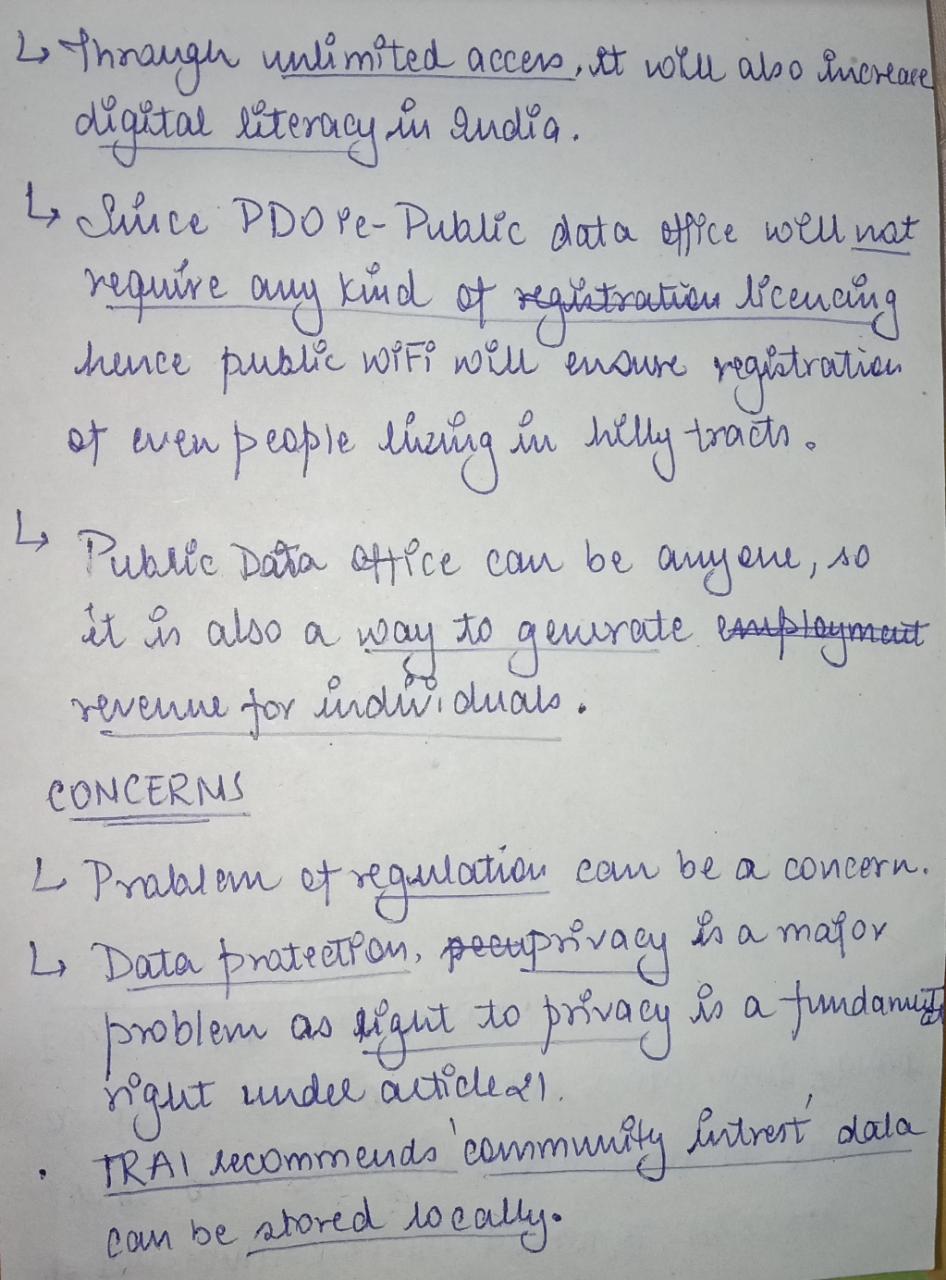 ↳ Through unlimited access, it will also increase
digital literacy in India.
↳ Since PDO ie - Public data office will not
require any kind of registration licencing
hence public WiFi will ensure registration
of even people living in hilly tracts.
↳ Public Data Office can be anyone, so
it is also a way to generate employment
revenue for individuals.
CONCERNS
↳ Problem of regulation can be a concern.
↳ Data protection, privacy is a major
problem as right to privacy is a fundamental
right under article 21.
• TRAI recommends 'community intrest' data
can be stored locally.